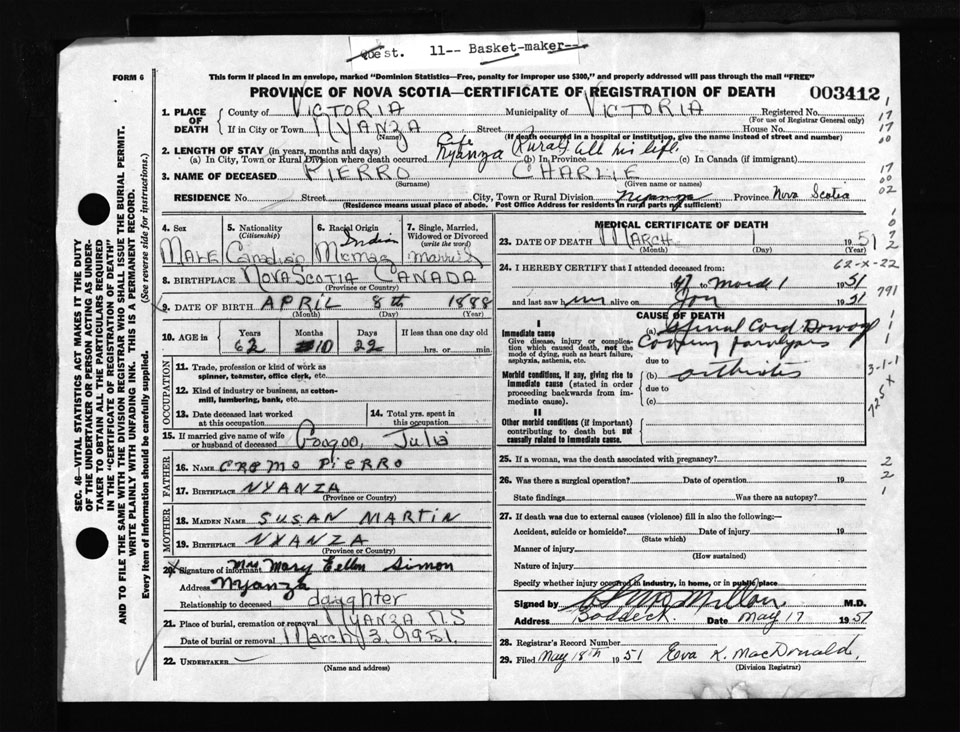 Quest. 11-- Basket-maker--
FORM 6
This form if placed in an envelope, marked "Dominion Statistics—Free, penalty for improper use $300," and properly addressed will pass through the mail "FREE"
PROVINCE OF NOVA SCOTIA—CERTIFICATE OF REGISTRATION OF DEATH 003412
1. PLACE OF DEATH
County of VICTORIA Municipality of VICTORIA Registered No.
(For use of Registrar General only)
If in City or Town NYANZA Street House No.
(Name) (If death occurred in a hospital or institution, give the name instead of street and number)
2. LENGTH OF STAY (in years, months and days)
(a) In City, Town or Rural Division where death occurred Life Nyanza (Rural) (b) In Province all his life. (c) In Canada (if immigrant)
3. NAME OF DECEASED PIERRO CHARLIE
(Surname) (Given name or names)
RESIDENCE No. Street City, Town or Rural Division Nyanza Province Nova Scotia
(Residence means usual place of abode. Post Office Address for residents in rural parts not sufficient)
4. Sex
MALE
5. Nationality
(Citizenship)
Canadian
6. Racial Origin
Indian
Micmaq
7. Single, Married, Widowed or Divorced
(write the word)
Married
8. BIRTHPLACE NOVA SCOTIA CANADA
(Province or Country)
9. DATE OF BIRTH APRIL 8th 1888
(Month) (Day) (Year)
10. AGE in
Years Months Days If less than one day old
62 10 22 hrs. or min.
OCCUPATION
11. Trade, profession or kind of work as spinner, teamster, office clerk, etc.
12. Kind of industry or business, as cotton-mill, lumbering, bank, etc.
13. Date deceased last worked at this occupation
14. Total yrs. spent in this occupation
15. If married give name of wife or husband of deceased Googoo, Julia
FATHER
16. NAME CREMO PIERRO
17. BIRTHPLACE NYANZA
(Province or Country)
MOTHER
18. MAIDEN NAME SUSAN MARTIN
19. BIRTHPLACE NYANZA
(Province or Country)
20. Signature of informant Mrs Mary Ellen Simon
Address Nyanza
Relationship to deceased daughter
21. Place of burial, cremation or removal NYANZA N.S
Date of burial or removal March 3, 1951.
22. UNDERTAKER
(Name and address)
MEDICAL CERTIFICATE OF DEATH
23. DATE OF DEATH MARCH 1 1951
(Month) (Day) (Year)
24. I HEREBY CERTIFY that I attended deceased from:
1947 to March 1 1951
and last saw him alive on Jan 1951
CAUSE OF DEATH
I
Immediate cause
Give disease, injury or complication which caused death, not the mode of dying, such as heart failure, asphyxia, asthenia, etc.
(a) Spinal Cord
paralysis
due to
Morbid conditions, if any, giving rise to immediate cause (stated in order proceeding backwards from immediate cause)
(b) arthritis
due to
(c)
II
Other morbid conditions (if important) contributing to death but not causally related to immediate cause.
25. If a woman, was the death associated with pregnancy?
26. Was there a surgical operation? Date of operation 19
State findings Was there an autopsy?
27. If death was due to external causes (violence) fill in also the following:—
Accident, suicide or homicide? Date of injury 19
(State which)
Manner of injury
(How sustained)
Nature of injury
Specify whether injury occurred in industry, in home, or in public place
Signed by MacMillan M.D.
Address Baddeck Date May 17 1951
28. Registrar's Record Number
29. Filed May 18th 1951 Eva K. MacDonald,
(Division Registrar)
SEC. 46—VITAL STATISTICS ACT MAKES IT THE DUTY
OF THE UNDERTAKER OR PERSON ACTING AS UNDER-
TAKER TO OBTAIN ALL THE PARTICULARS REQUIRED
IN THE "CERTIFICATE OF REGISTRATION OF DEATH"
AND TO FILE THE SAME WITH THE DIVISION REGISTRAR WHO SHALL ISSUE THE BURIAL PERMIT.
WRITE PLAINLY WITH UNFADING INK. THIS IS A PERMANENT RECORD.
Every item of Information should be carefully supplied. (See reverse side for instructions.)
1
17
17
00
17
00
02
1
0
7
2
62-X-22
791
1
1
1
3-1-1
725 x
2
2
1